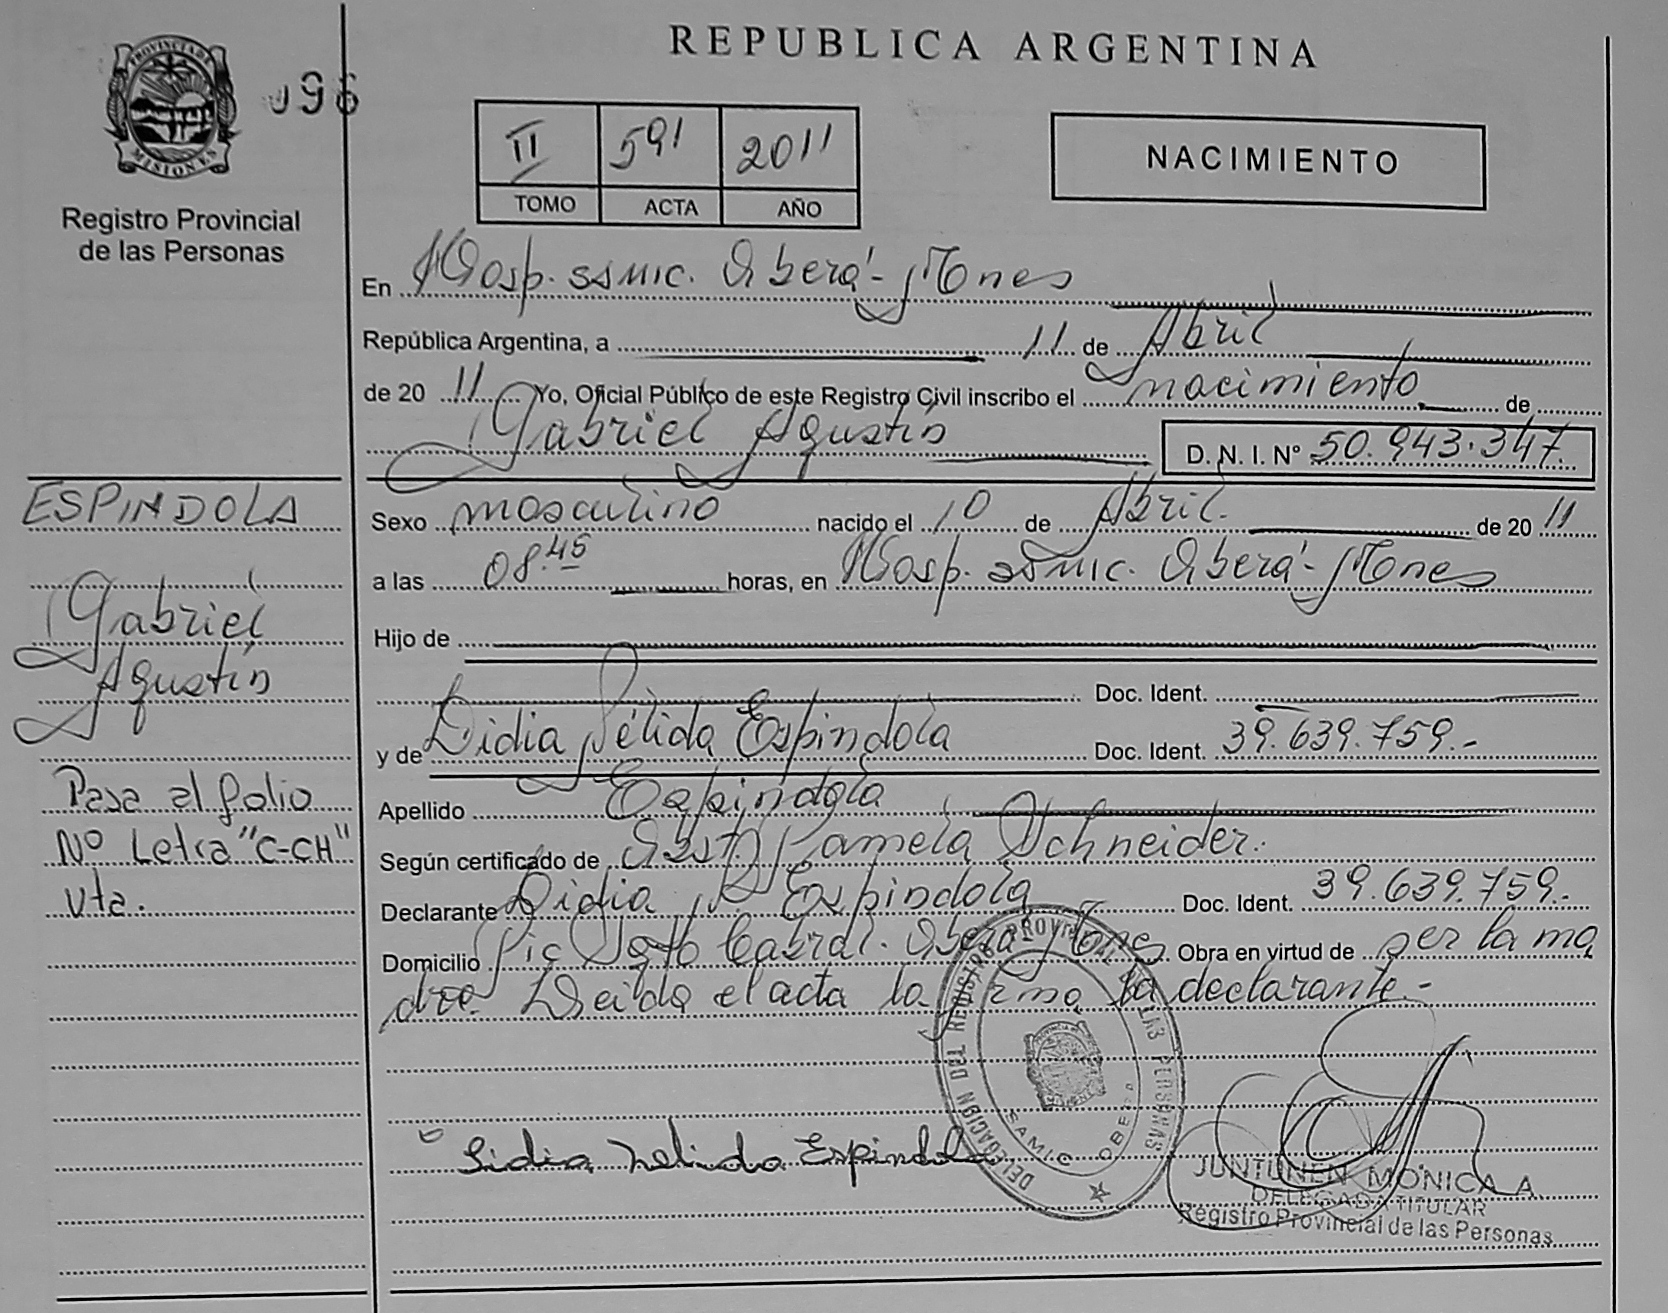 REPUBLICA ARGENTINA
PROVINCIA DE MISIONES
096
II 591 2011
TOMO ACTA AÑO
NACIMIENTO
Registro Provincial
de las Personas
En Hosp. SAMIC. Oberá - Mnes
República Argentina, a 11 de Abril
de 20 11 Yo, Oficial Público de este Registro Civil inscribo el nacimiento de
Gabriel Agustín D. N. I. Nº 50.943.347.
Sexo masculino nacido el 10 de Abril. de 20 11
a las 08.45 horas, en Hosp. SAMIC. Oberá - Mnes
Hijo de
Doc. Ident.
y de Lidia Nélida Espindola Doc. Ident. 39.639.759.-
Apellido Espindola
Según certificado de Obst. Pamela Schneider.
Declarante Lidia N. Espindola Doc. Ident. 39.639.759.-
Domicilio Sgto Cabral. Oberá Mnes. Obra en virtud de ser la ma
dre. Leida el acta la firma la declarante.-
ESPINDOLA
Gabriel
Agustín
Pasa al folio
Nº Letra "C-CH"
vta.
Lidia Nelida Espindola
DELEGACION DEL REGISTRO PROVINCIAL DE LAS PERSONAS
SAMIC OBERA
JUNTUNEN MONICA A
DELEGADA TITULAR
Registro Provincial de las Personas